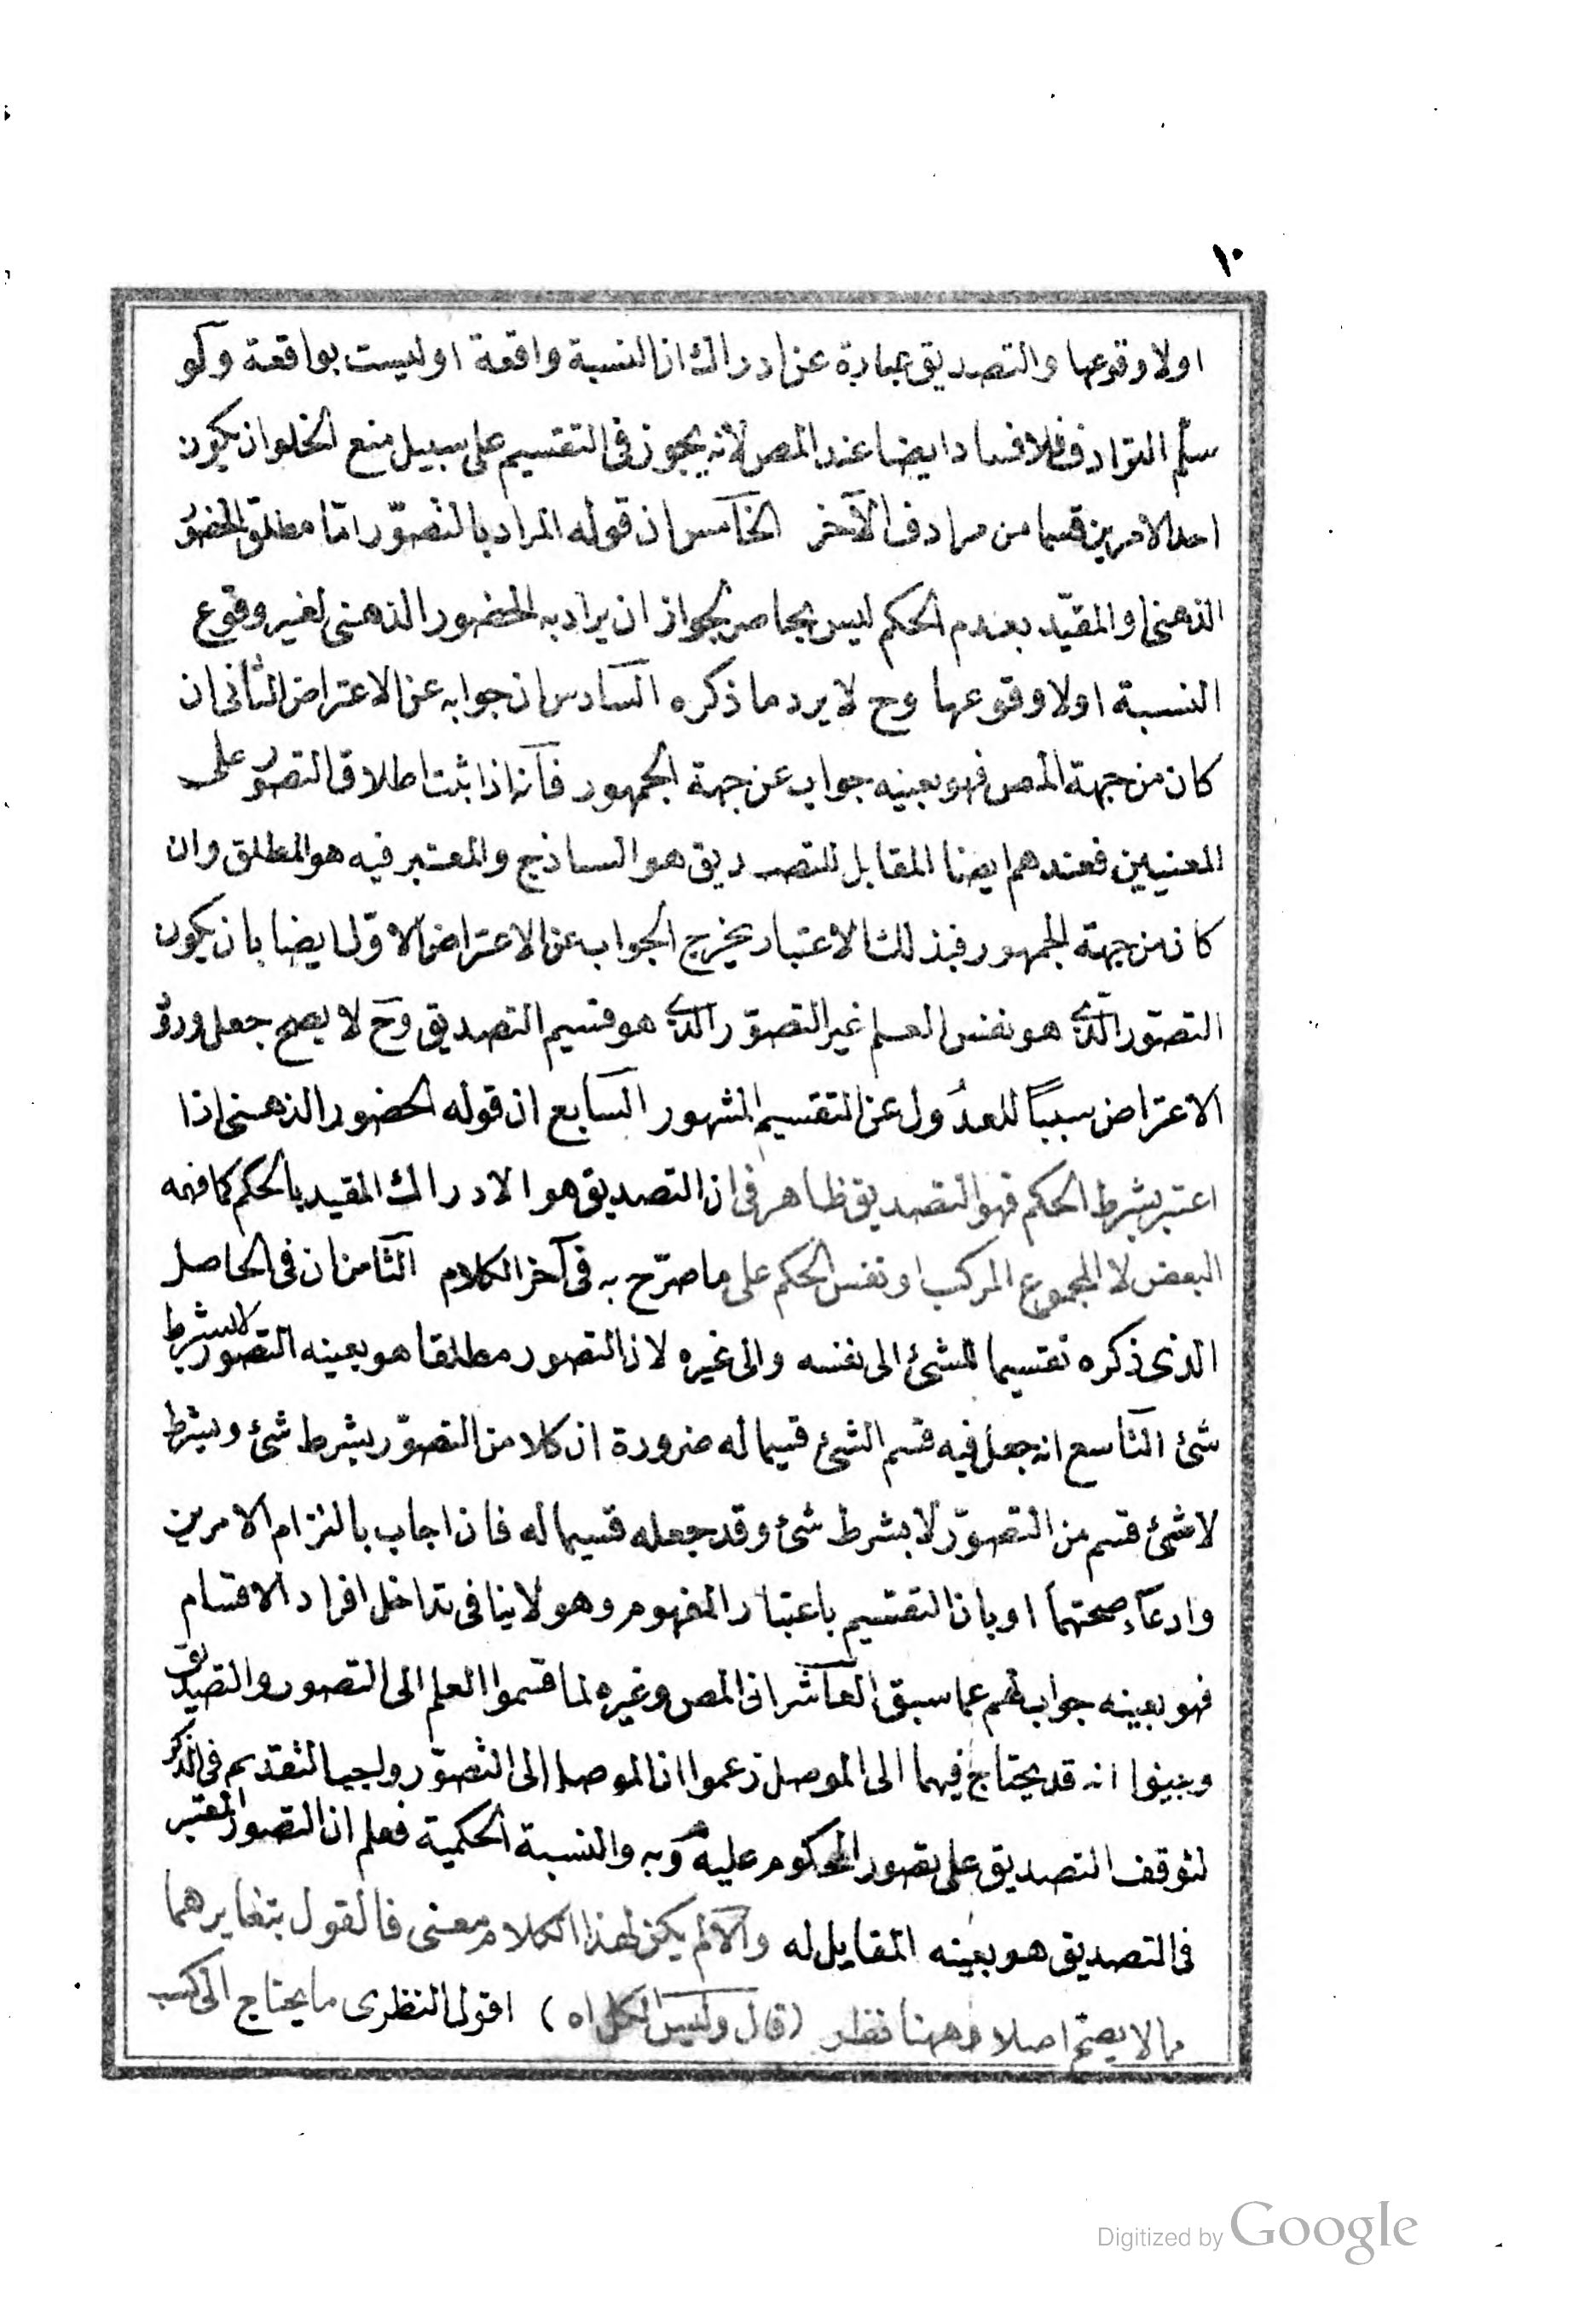 ١٠
اولا وقوعها والتصديق عبارة عن ادراك ان النسبة واقعة او ليست بواقعة ولو
سلم الترادف فلا فساد ايضا عند المص لانه يجوز فى التقسيم على سبيل منع الخلو ان يكون
احد الامرين قسما من مرادف الآخر الخامس ان قوله المراد بالتصوّر امّا مطلق الحضور
الذهنى او المقيّد بعدم الحكم ليس بحاصر لجواز ان يراد به الحضور الذهنى لغير وقوع
النسبة اولا وقوعها وح لا يرد ما ذكره السادس ان جوابه عن الاعتراض الثانى ان
كان من جهة المص فهو بعينه جواب عن جهة الجمهور فانه اذا ثبت اطلاق التصور على
المعنيين فعندهم ايضا المقابل للتصديق هو الساذج والمعتبر فيه هو المطلق وان
كان من جهة الجمهور فبذلك الاعتبار يخرج الجواب عن الاعتراض الاوّل ايضا بان يكون
التصوّر الذى هو نفس العلم غير التصوّر الذى هو قسيم التصديق وح لا يصح جعل ورود
الاعتراض سببًا للعدُول عن التقسيم المشهور السابع ان قوله الحضور الذهنى اذا
اعتبر بشرط الحكم فهو التصديق ظاهر فى ان التصديق هو الادراك المقيد بالحكم كما فهمه
البعض لا المجموع المركب او نفس الحكم على ما صرّح به فى آخر الكلام الثامن ان فى الحاصل
الذى ذكره تقسيما للشئ الى نفسه والى غيره لان التصور مطلقا هو بعينه التصور لا بشرط
شئ التاسع انه جعل فيه قسم الشئ قسيما له ضرورة ان كلا من التصوّر بشرط شئ وبشرط
لا شئ قسم من التصوّر لا بشرط شئ وقد جعله قسيما له فان اجاب بالتزام الامرين
وادعآء صحتهما او بان التقسيم باعتبار المفهوم وهو لا ينافى تداخل افراد الاقسام
فهو بعينه جواب لهم عما سبق العاشر ان المص وغيره لما قسموا العلم الى التصور والتصديق
وبينوا انه قد يحتاج فيهما الى الموصل زعموا ان الموصل الى التصوّر واجب التقديم فى الذكر
لتوقف التصديق على تصور المحكوم عليه وبه والنسبة الحكمية فعلم ان التصور المعتبر
فى التصديق هو بعينه المقابل له والا لم يكن لهذا الكلام معنى فالقول بتغايرهما
مما لا يصح اصلا وههنا نظر (قال وليس الكل اه) اقول النظرى ما يحتاج الى كسب
Digitized by Google